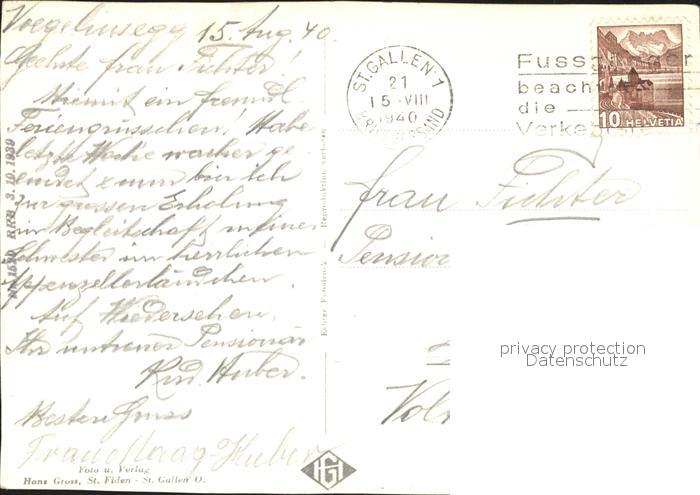 Voegelinsegg 15. Aug. 40
Geehrte Frau Fichter!
Hiemit ein freundl.
Feriengrüsschen! Habe
letzte Woche wacker ge-
und nun bin ich
zur grossen Erholung
in Begleitschaft meiner
Schwester im herrlichen
Appenzellerländchen.
Auf Wiedersehen,
Ihr untreuer Pensionär
Rud. Huber.
Besten Gruss
Frau Haag-Huber
Foto u. Verlag
Hans Gross, St. Fiden - St. Gallen O.
HG
Nr. 1520 BRB 3. 10. 1939
Echter Fotodruck
Reproduktion verboten
ST. GALLEN 1
21
15 · VIII
1940
BRIEFVERSAND
Fussgänger
beachtet
die
Verkehrs
10 HELVETIA
Frau Fichter
Pension
Vol
privacy protection
Datenschutz